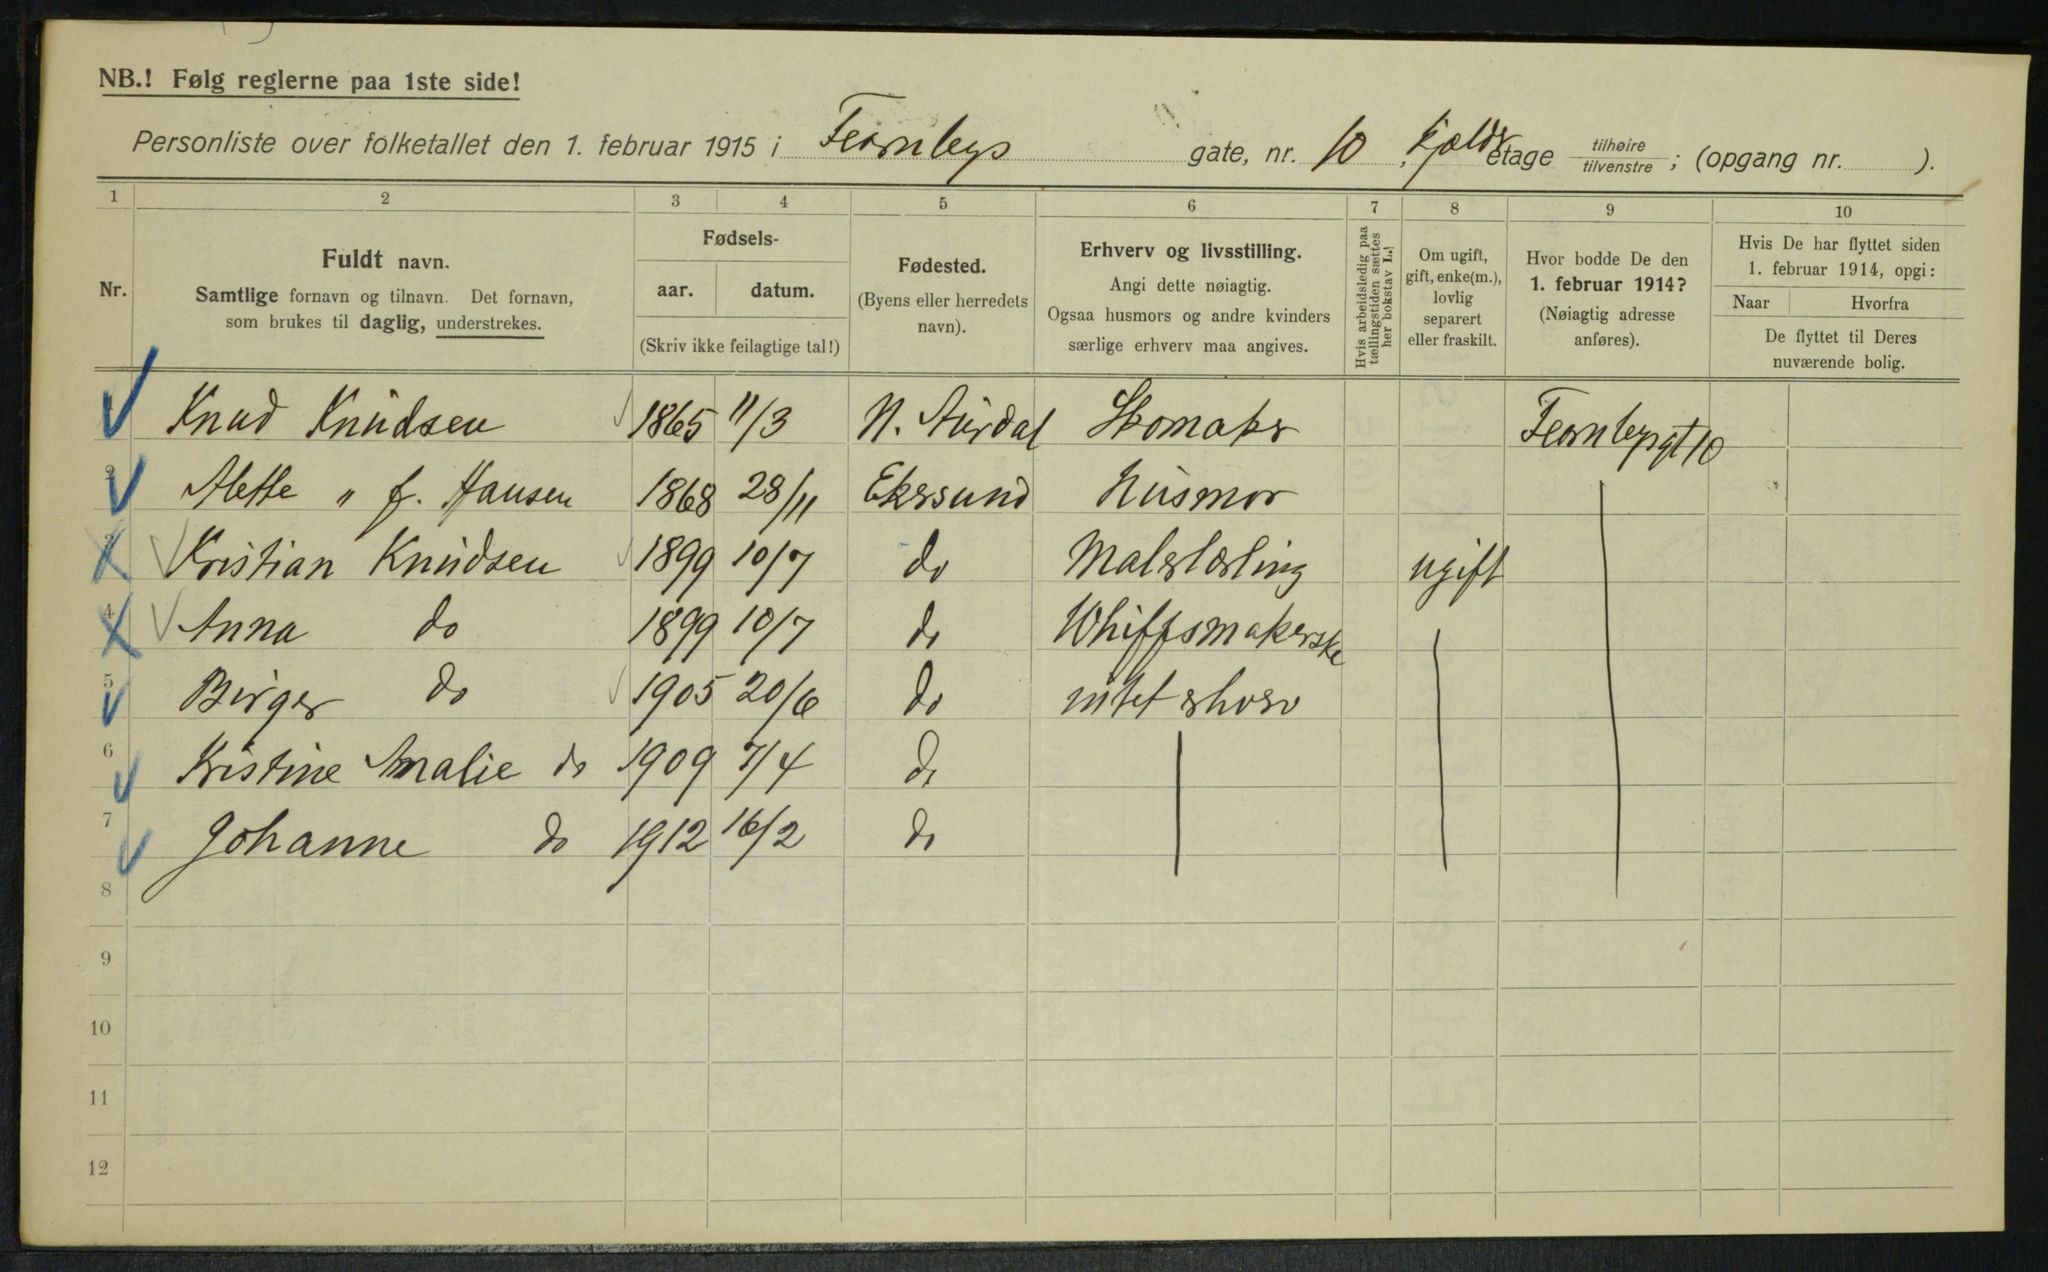 NB.! Følg reglerne paa 1ste side!
Personliste over folketallet den 1. februar 1915 i Fearnleys gate, nr. 10, kjælder etage tilhøire tilvenstre; (opgang nr. ).
1 2 3 4 5 6 7 8 9 10
Nr.
Fuldt navn.
Samtlige fornavn og tilnavn. Det fornavn,
som brukes til daglig, understrekes.
Fødsels-
aar. datum.
(Skriv ikke feilagtige tal!)
Fødested.
(Byens eller herredets
navn).
Erhverv og livsstilling.
Angi dette nøiagtig.
Ogsaa husmors og andre kvinders
særlige erhverv maa angives.
Hvis arbeidsledig paa
tællingstiden sættes
her bokstav L.!
Om ugift,
gift, enke(m.),
lovlig
separert
eller fraskilt.
Hvor bodde De den
1. februar 1914?
(Nøiagtig adresse
anføres).
Hvis De har flyttet siden
1. februar 1914, opgi:
Naar Hvorfra
De flyttet til Deres
nuværende bolig.
Knud Knudsen 1865 11/3 N. Aurdal Skomaker Fearnleysgt 10
2 Alette " f. Hansen 1868 28/11 Ekersund Husmor
3 Kristian Knudsen 1899 10/7 do Malerlærling ugift
4 Anna do 1899 10/7 do Whiffsmakerske
5 Birger do 1905 20/6 do intet erhverv
6 Kristine Amalie do 1909 7/4 do
7 Johanne do 1912 16/2 do
8
9
10
11
12